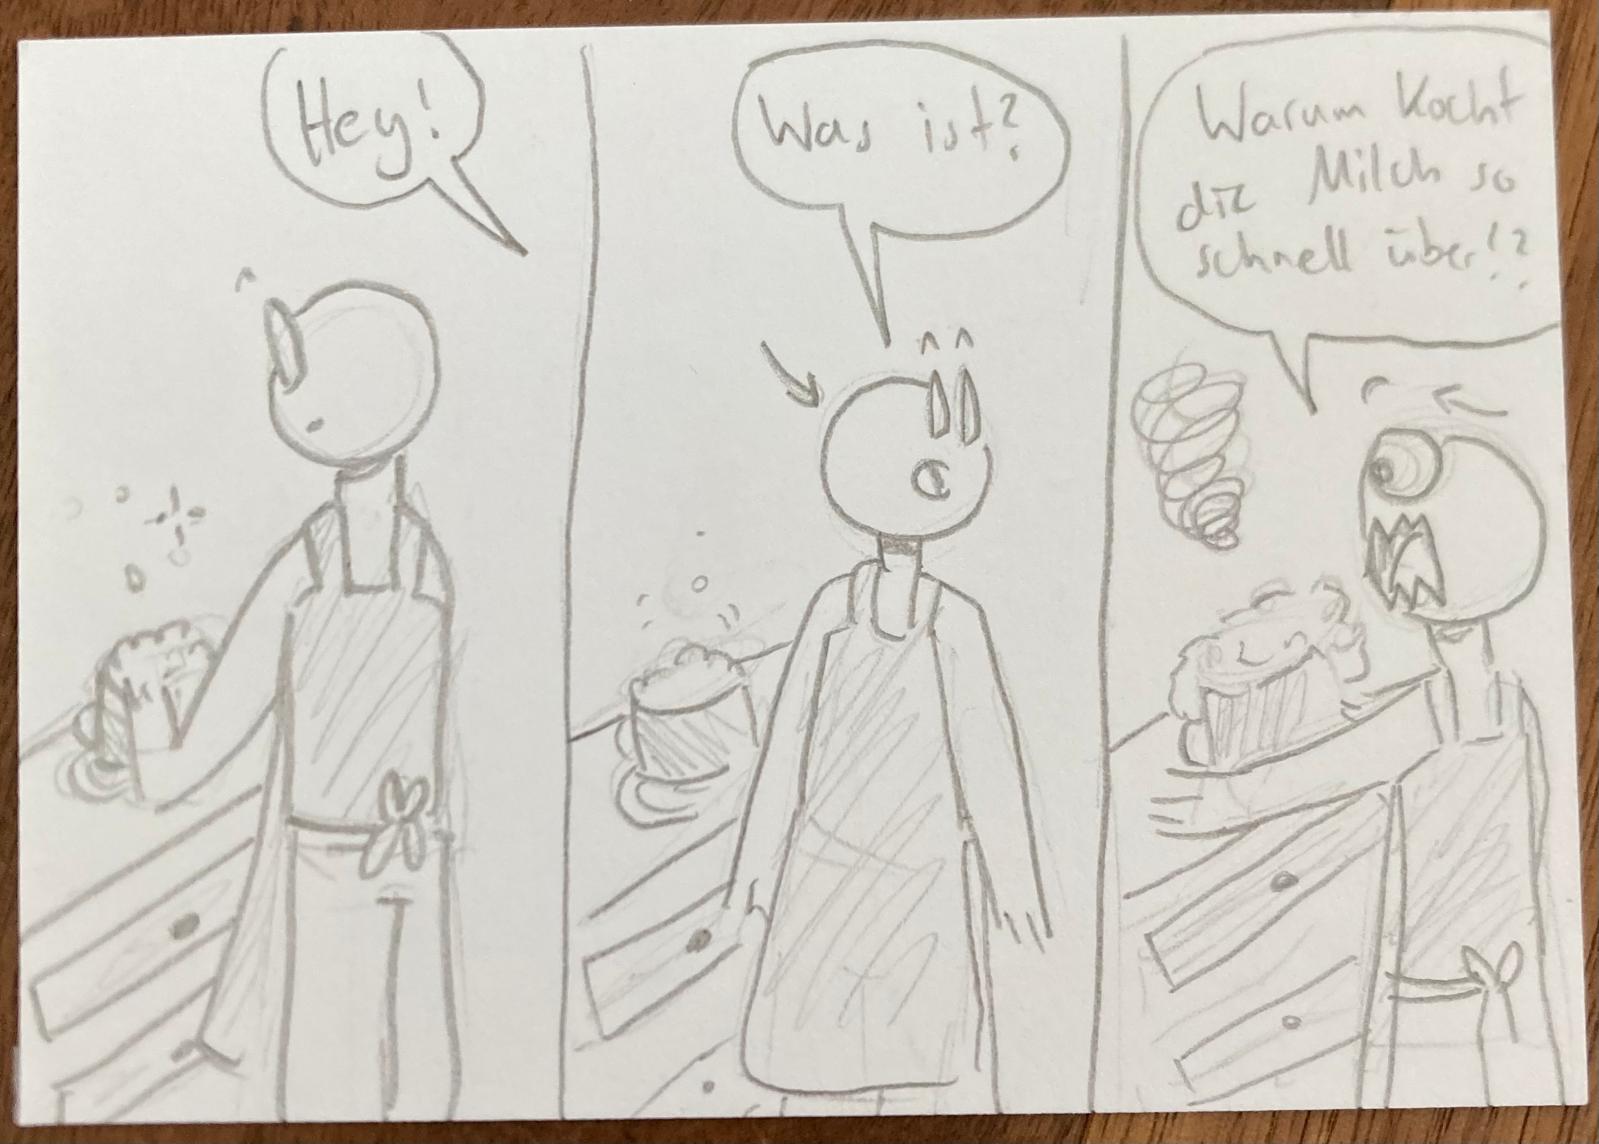 Hey!
Was ist?
Warum kocht
die Milch so
schnell über!?